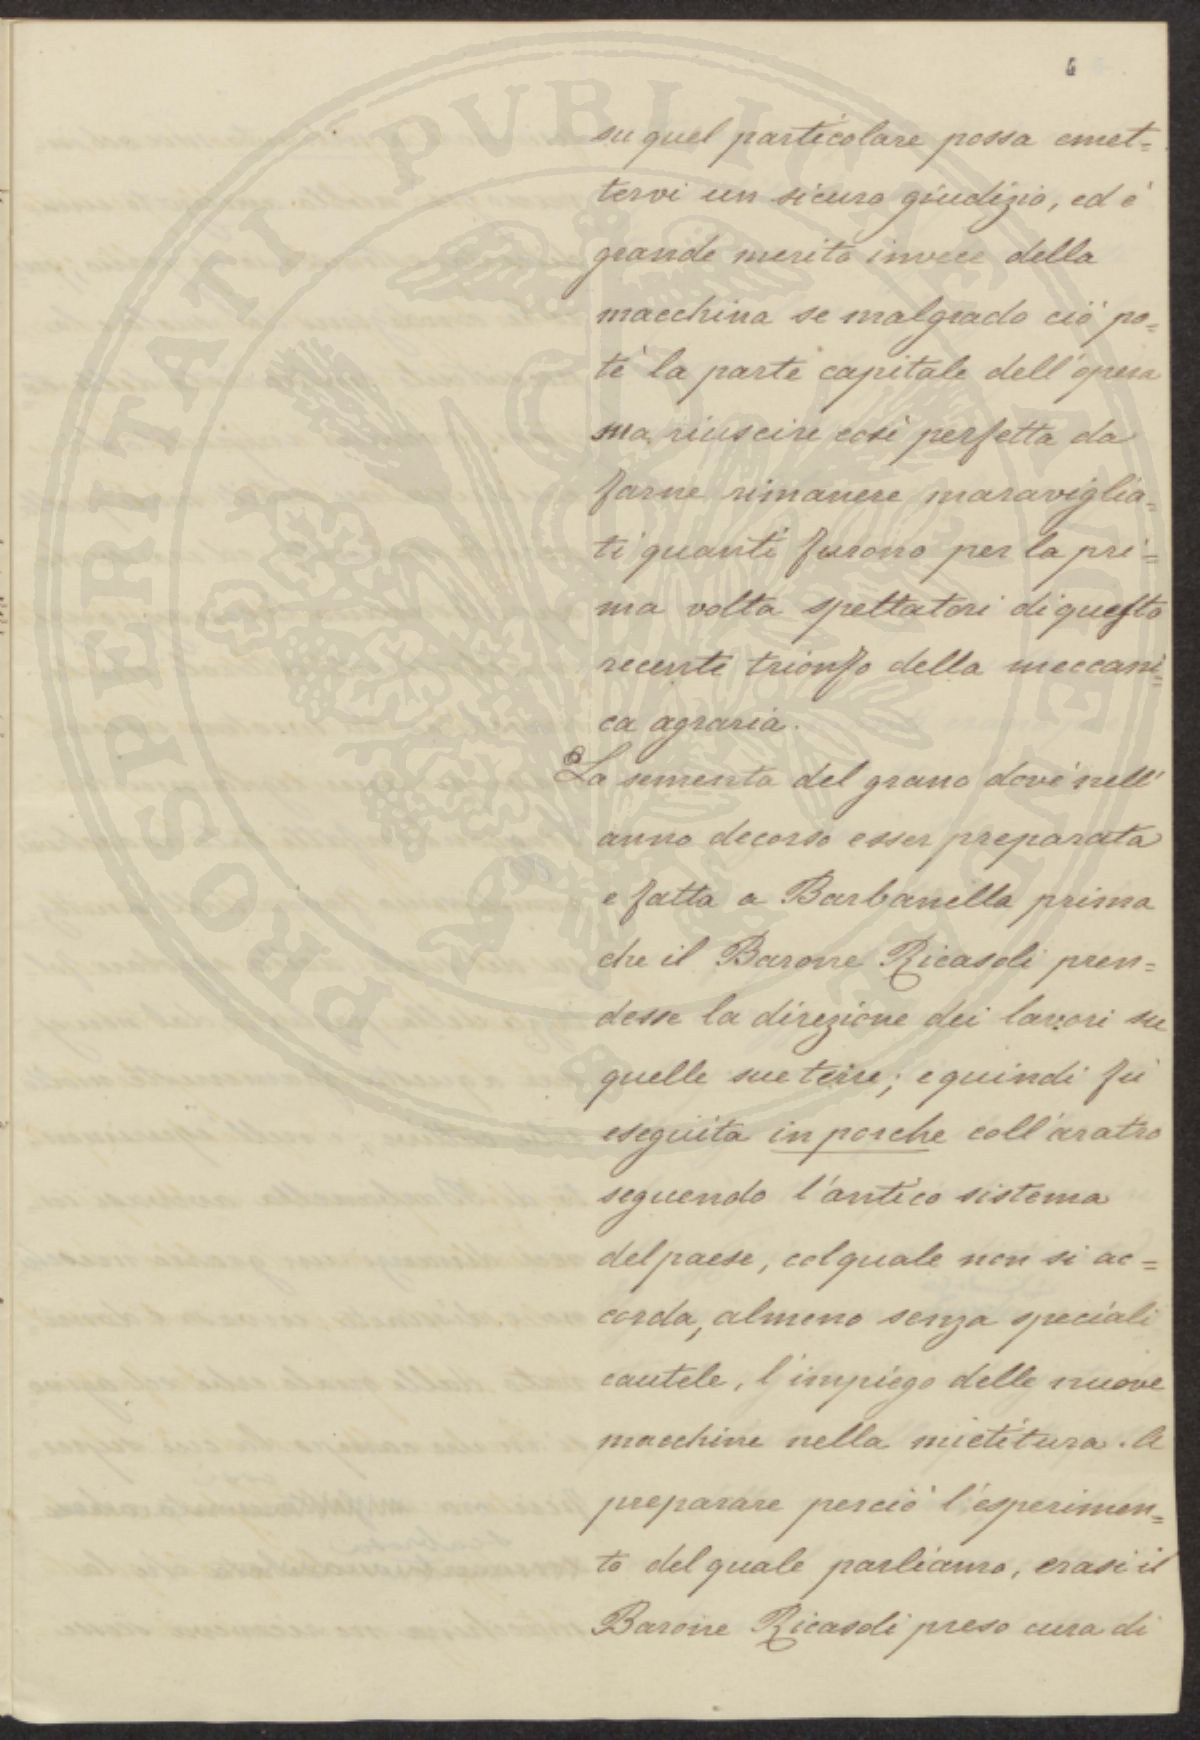 4
su quel particolare possa emet=
tervi un sicuro giudizio, ed è
grande merito invece della
macchina se malgrado ciò po=
tè la parte capitale dell'opera
ma riuscire così perfetta da
farne rimanere maraviglia=
ti quanti furono per la pri=
ma volta spettatori di questo
recente trionfo della meccani=
ca agraria.
La sementa del grano dovè nell'
anno decorso esser preparata
e fatta a Barbanella prima
che il Barone Ricasoli pren=
desse la direzione dei lavori su
quelle sue terre; e quindi fù
eseguita in porche coll'aratro
seguendo l'antico sistema
del paese, col quale non si ac=
corda, almeno senza speciali
cautele, l'impiego delle nuove
macchine nella mietitura. A
preparare perciò l'esperimen=
to del quale parliamo, erasi il
Barone Ricasoli preso cura di
PROSPERITATI PUBLICAE AUGENDAE